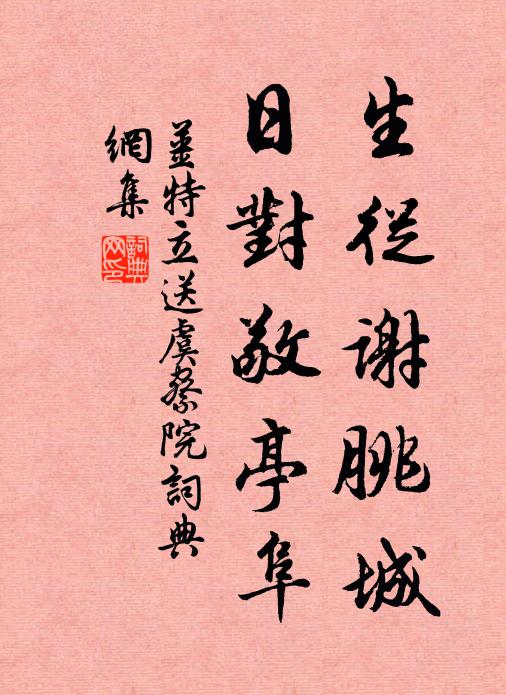 生從謝脁城
日對敬亭阜
姜特立送虞察院詞典
網集
詞典
网印